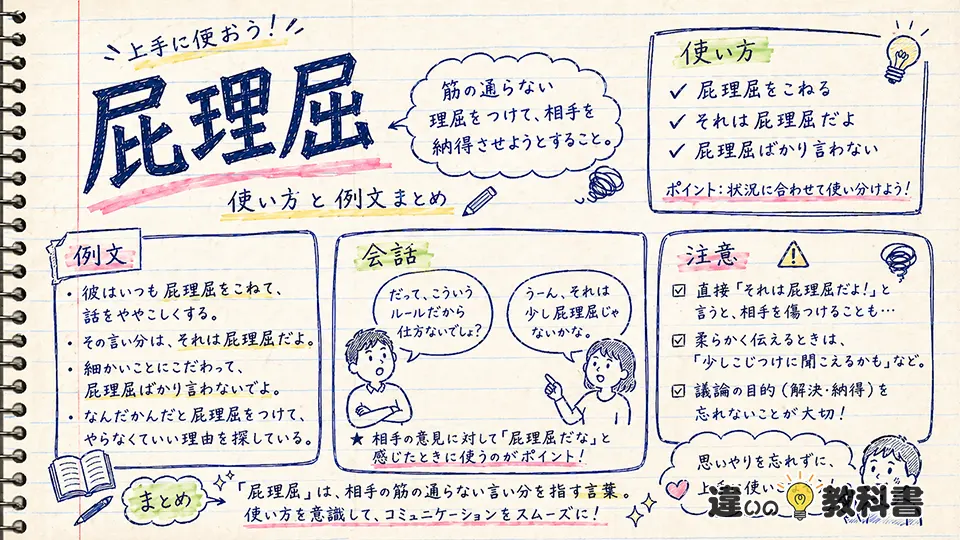 上手に使おう!
屁理屈
使い方と例文まとめ
筋の通らない
理屈をつけて、相手を
納得させようとすること。
使い方
✓ 屁理屈をこねる
✓ それは屁理屈だよ
✓ 屁理屈ばかり言わない
ポイント:状況に合わせて使い分けよう!
例文
・彼はいつも屁理屈をこねて、
話をややこしくする。
・その言い分は、それは屁理屈だよ。
・細かいことにこだわって、
屁理屈ばかり言わないでよ。
・なんだかんだと屁理屈をつけて、
やらなくていい理由を探している。
会話
だって、こういう
ルールだから
仕方ないでしょ?
うーん、それは
少し屁理屈じゃ
ないかな。
★ 相手の意見に対して「屁理屈だな」と
感じたときに使うのがポイント!
注意
☑ 直接「それは屁理屈だよ!」と
言うと、相手を傷つけることも…
☑ 柔らかく伝えるときは、
「少しこじつけに聞こえるかも」など。
☑ 議論の目的(解決・納得)を
忘れないことが大切!
まとめ
「屁理屈」は、相手の筋の通らない言い分を指す言葉。
使い方を意識して、コミュニケーションをスムーズに!
思いやりを忘れずに、
上手に使い
違いの教科書